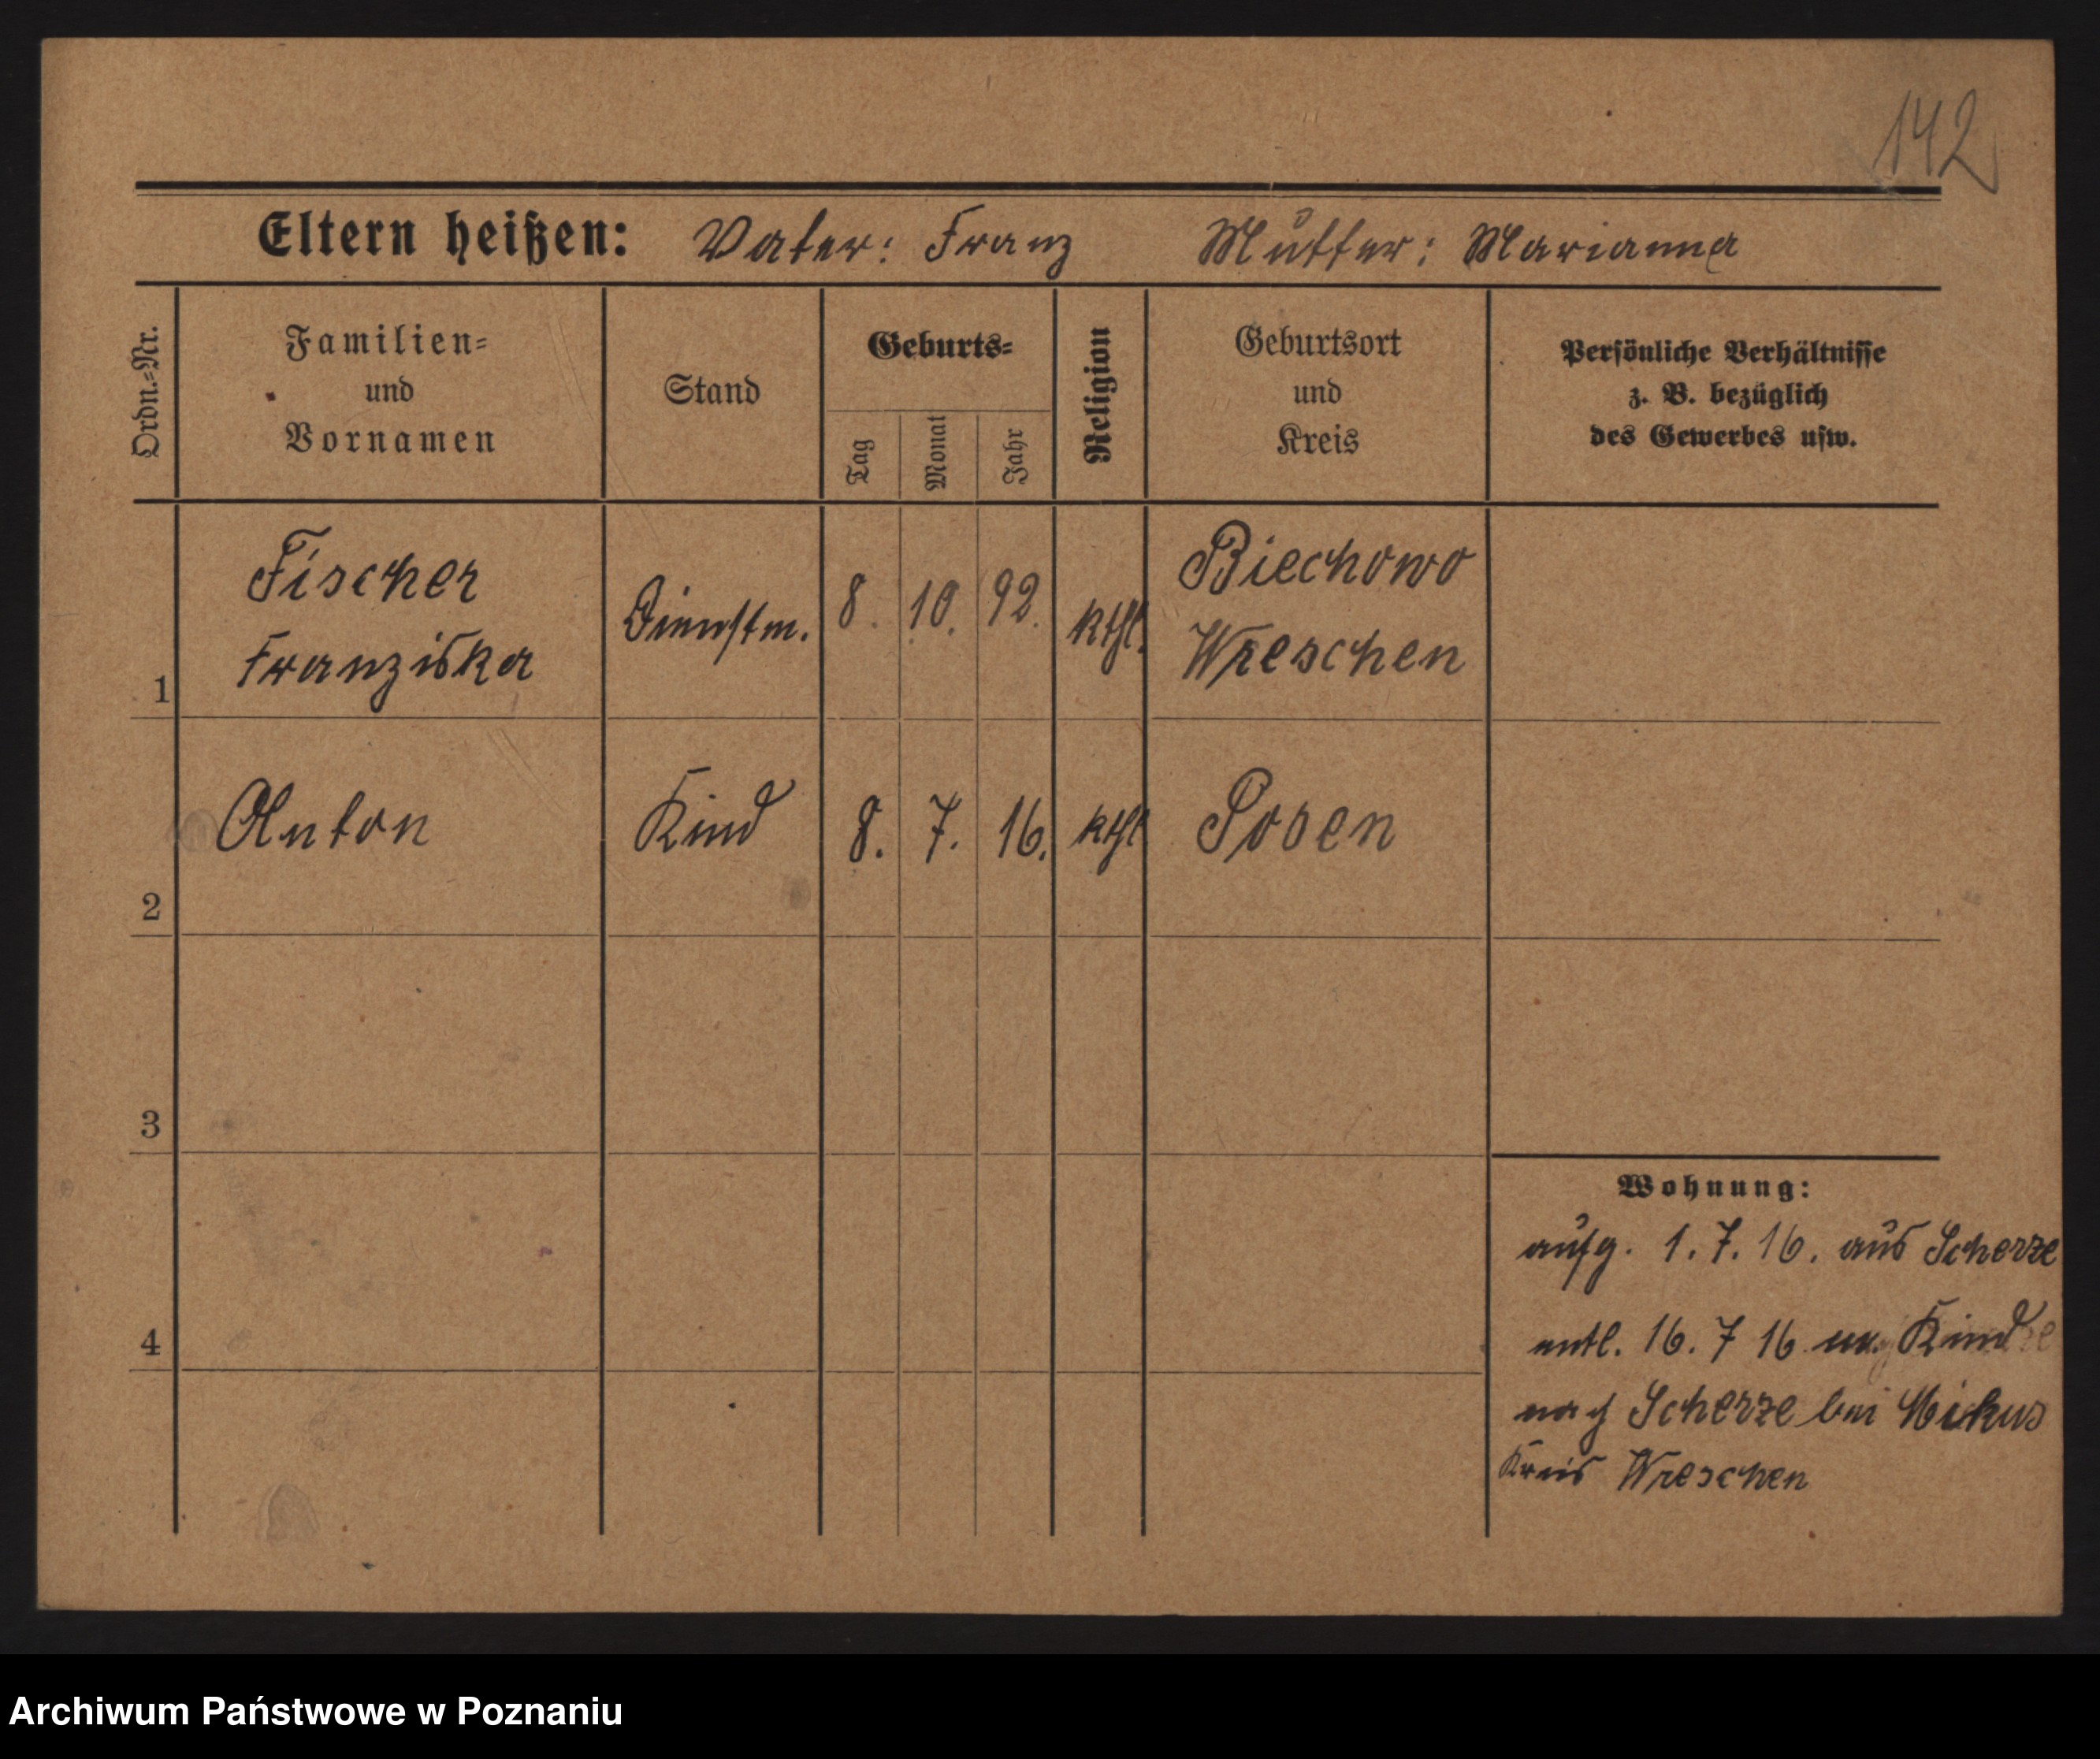 142
Eltern heißen: Vater: Franz Mutter: Marianna
Ordn.=Nr.
Familien=
und
Vornamen
Stand
Geburts=
Tag
Monat
Jahr
Religion
Geburtsort
und
Kreis
Persönliche Verhältnisse
z. B. bezüglich
des Gewerbes usw.
1
Fischer
Franziska
Dienstm.
8. 10. 92.
kthl.
Biechowo
Wreschen
2
Anton
Kind
8. 7. 16.
kthl
Posen
3
4
Wohnung:
aufg. 1. 7. 16. aus Scherze
entl. 16. 7 16 m. Kind
nach Scherze bei Mikus
Kreis Wreschen
Archiwum Państwowe w Poznaniu